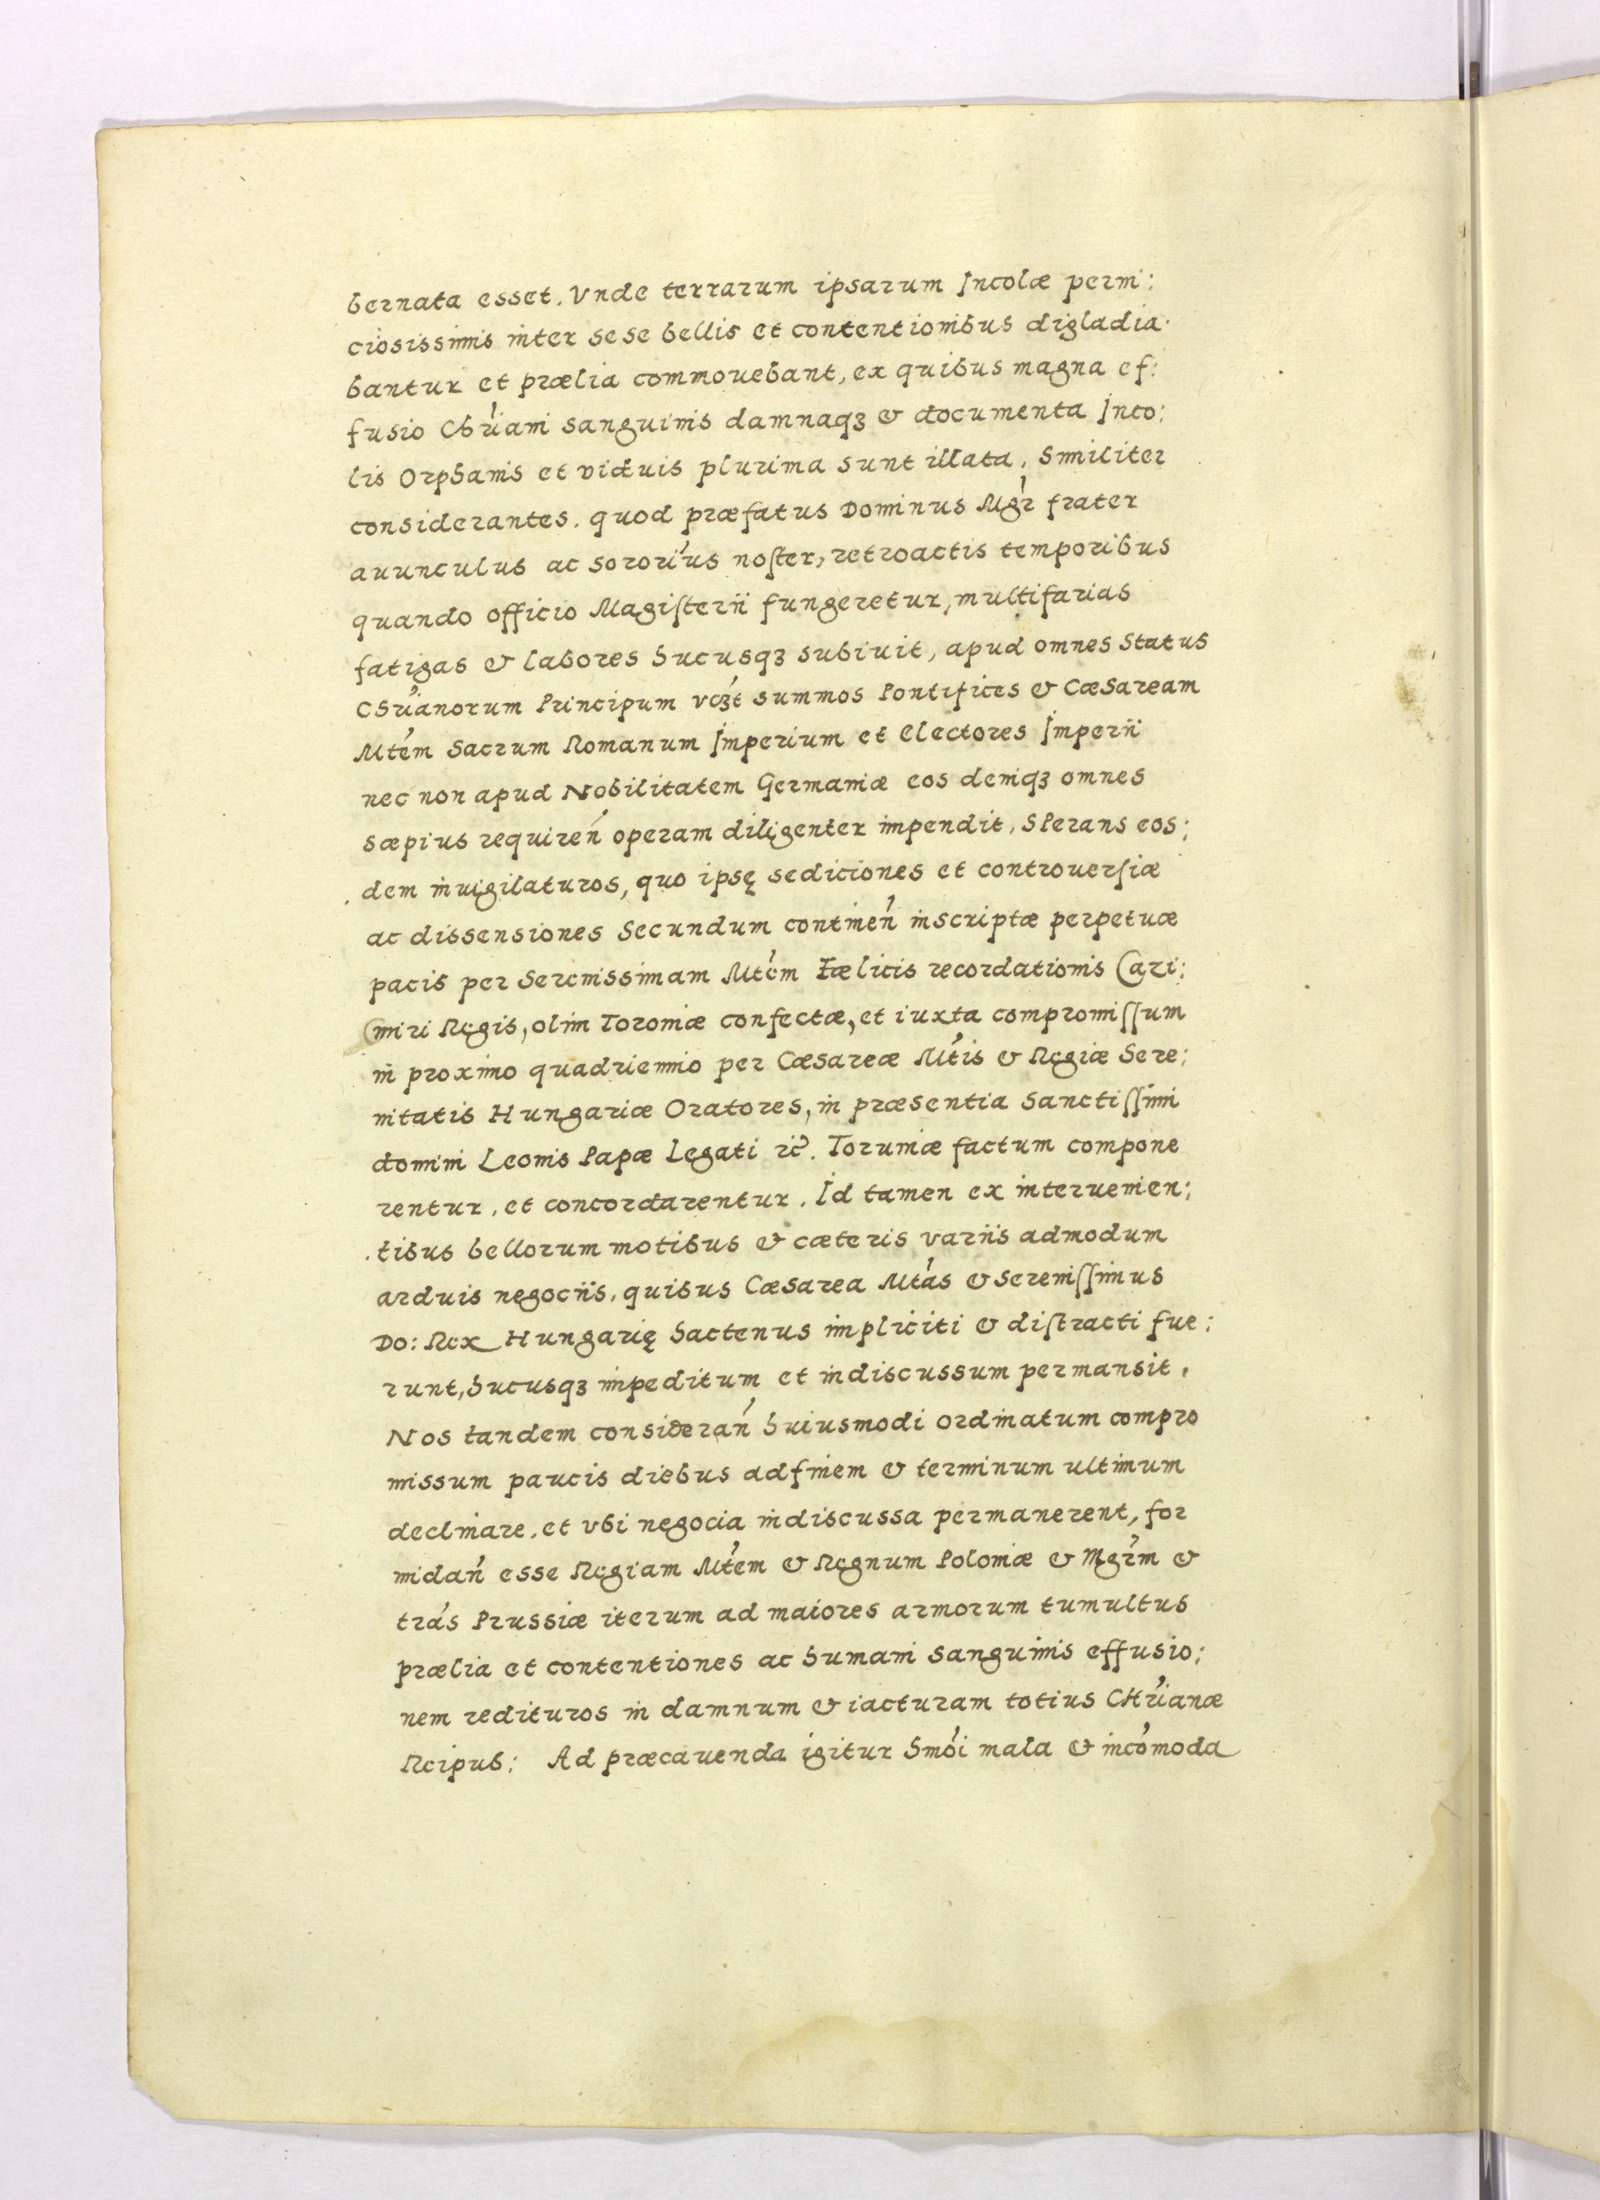 bernata esset. Vnde terrarum ipsarum Incolæ perni:
ciosissimis inter sese bellis et contentionibus digladia:
bantur et prælia commouebant, ex quibus magna ef:
fusio Chr̃iani sanguinis damnaqꝫ & documenta Inco:
lis Orphanis et viduis plurima sunt illata. Similiter
considerantes. quod præfatus Dominus Mgr̃ frater
auunculus ac sororius noſter, retroactis temporibus
quando officio Magiſterii fungeretur, multifarias
fatigas & labores hucusqꝫ subiuit, apud omnes Status
Chr̃ianorum Principum vcꝫt summos Pontifices & Cæsaream
Mtẽm Sacrum Romanum Imperium et Electores Imperii
nec non apud Nobilitatem Germaniæ eos deniqꝫ omnes
sæpius requireñ operam diligenter impendit, Sperans eos:
dem inuigilaturos, quo ipsę sediciones et controuerſiæ
ac dissensiones Secundum continen̄ inscriptæ perpetuæ
pacis per Serenissimam Mtẽm Fælicis recordationis Cazi:
miri Regis, olim Toroniæ confectæ, et iuxta compromiſſum
in proximo quadriennio per Cæsareæ Mtĩs & Regiæ Sere:
nitatis Hungariæ Oratores, in præsentia Sanctiſſimi
domini Leonis Papæ Legati ꝛc̃. Toruniæ factum compone
rentur, et concordarentur. Id tamen ex interuenien:
tibus bellorum motibus & cæteris variis admodum
arduis negociis, quibus Cæsarea Mtãs & Sereniſſimus
Do: Rex Hungarię hactenus impliciti & diſtracti fue:
runt, hucusqꝫ impeditum et indiscussum permansit.
Nos tandem considerañ huiusmodi ordinatum compro
missum paucis diebus ad finem & terminum ultimum
declinare, et vbi negocia indiscussa permanerent, for
midañ esse Regiam Mtẽm & Regnum Poloniæ & Mgr̃m &
trãs Prussiæ iterum ad maiores armorum tumultus
prælia et contentiones ac humani sanguinis effusio:
nem redituros in damnum & iacturam totius CHr̃ianæ
Reipub: Ad præcauenda igitur hmõi mala & incõmoda